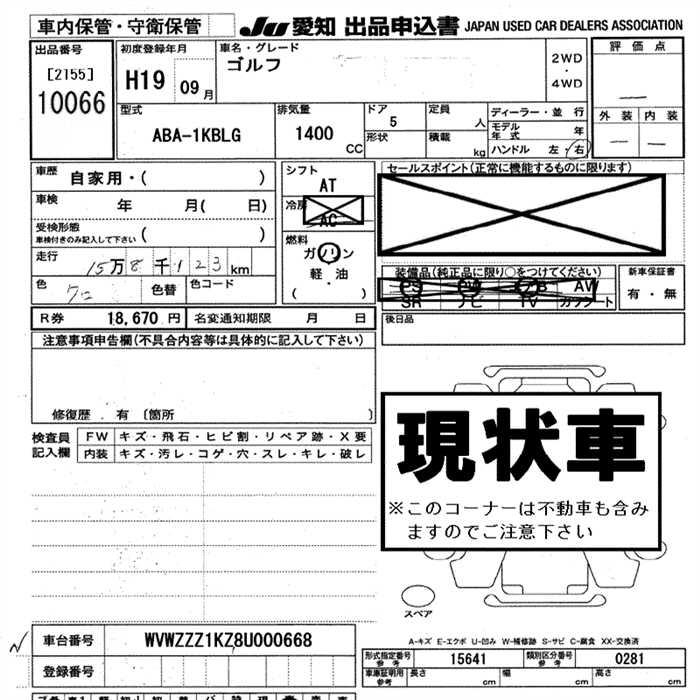 車内保管・守衛保管 JU 愛知 出品申込書 JAPAN USED CAR DEALERS ASSOCIATION
出品番号 初度登録年月 車名・グレード 評価点
[2155] H19 09月 ゴルフ 2WD・4WD
10066
型式 排気量 ドア 定員 ディーラー・並行 外装 内装
ABA-1KBLG 1400 CC 5 人 モデル年式 年
形状 積載 kg ハンドル 左・右
車歴 自家用・( ) シフト セールスポイント(正常に機能するものに限ります)
AT
車検 年 月( 日) 冷房
AC
受検形態
車検付きのみ記入して下さい ( ) 燃料
ガソリン
走行 15万8千123km 軽・油 装備品(純正品に限り○をつけてください) 新車保証書
( ) PS PW AB AW 有・無
色 クロ 色替 色コード SR ナビ TV カワシート
R券 18,670円 名変通知期限 月 日 後日品
注意事項申告欄(不具合内容等は具体的に記入して下さい)
修復歴・有〔箇所 〕
検査員記入欄 FW キズ・飛石・ヒビ割・リペア跡・X要
内装 キズ・汚レ・コゲ・穴・スレ・キレ・破レ
現状車
※このコーナーは不動車も含み
ますのでご注意下さい
スペア
A-キズ E-エクボ U-凹み W-補修跡 S-サビ C-腐食 XX-交換済
車台番号 WVWZZZ1KZ8U000668
型式指定番号 参考 15641 類別区分番号 参考 0281
登録番号
車庫証明用 参考 長さ cm 幅 cm 高さ cm